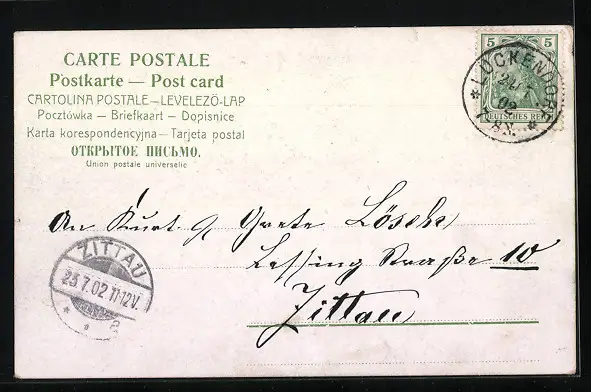 CARTE POSTALE
Postkarte — Post card
CARTOLINA POSTALE – LEVELEZŐ-LAP
Pocztówka – Briefkaart – Dopisnice
Karta korespondencyjna – Tarjeta postal
ОТКРЫТОЕ ПИСЬМО.
Union postale universelle
5 5
DEUTSCHES REICH
LÜCKENDORF
02
7-8N.
An Kurt & Grete Lösch
Lessing Straße 10
Zittau
ZITTAU
23.7.02.11-12V.